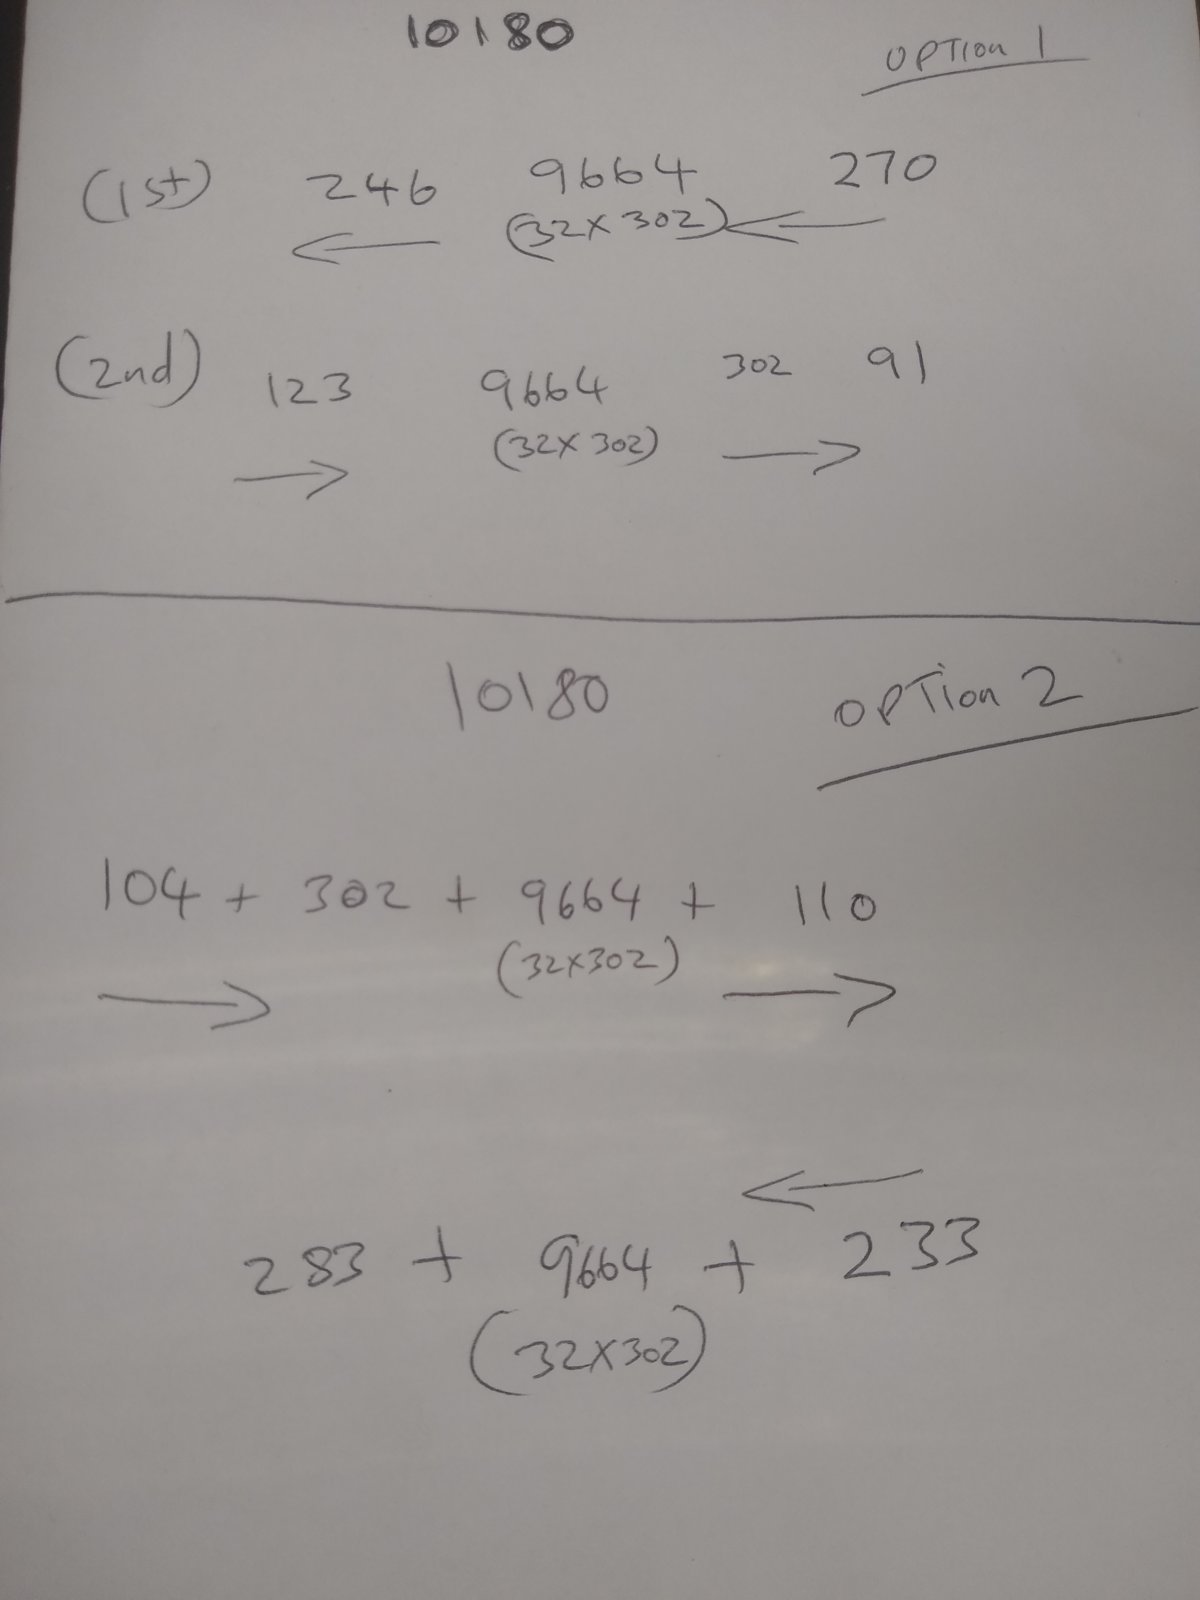 10180
OPTION 1
(1st) 246 9664 270
(32x302)
(2nd) 123 9664 302 91
(32x302)
10180
OPTION 2
104 + 302 + 9664 + 110
(32x302)
283 + 9664 + 233
(32x302)